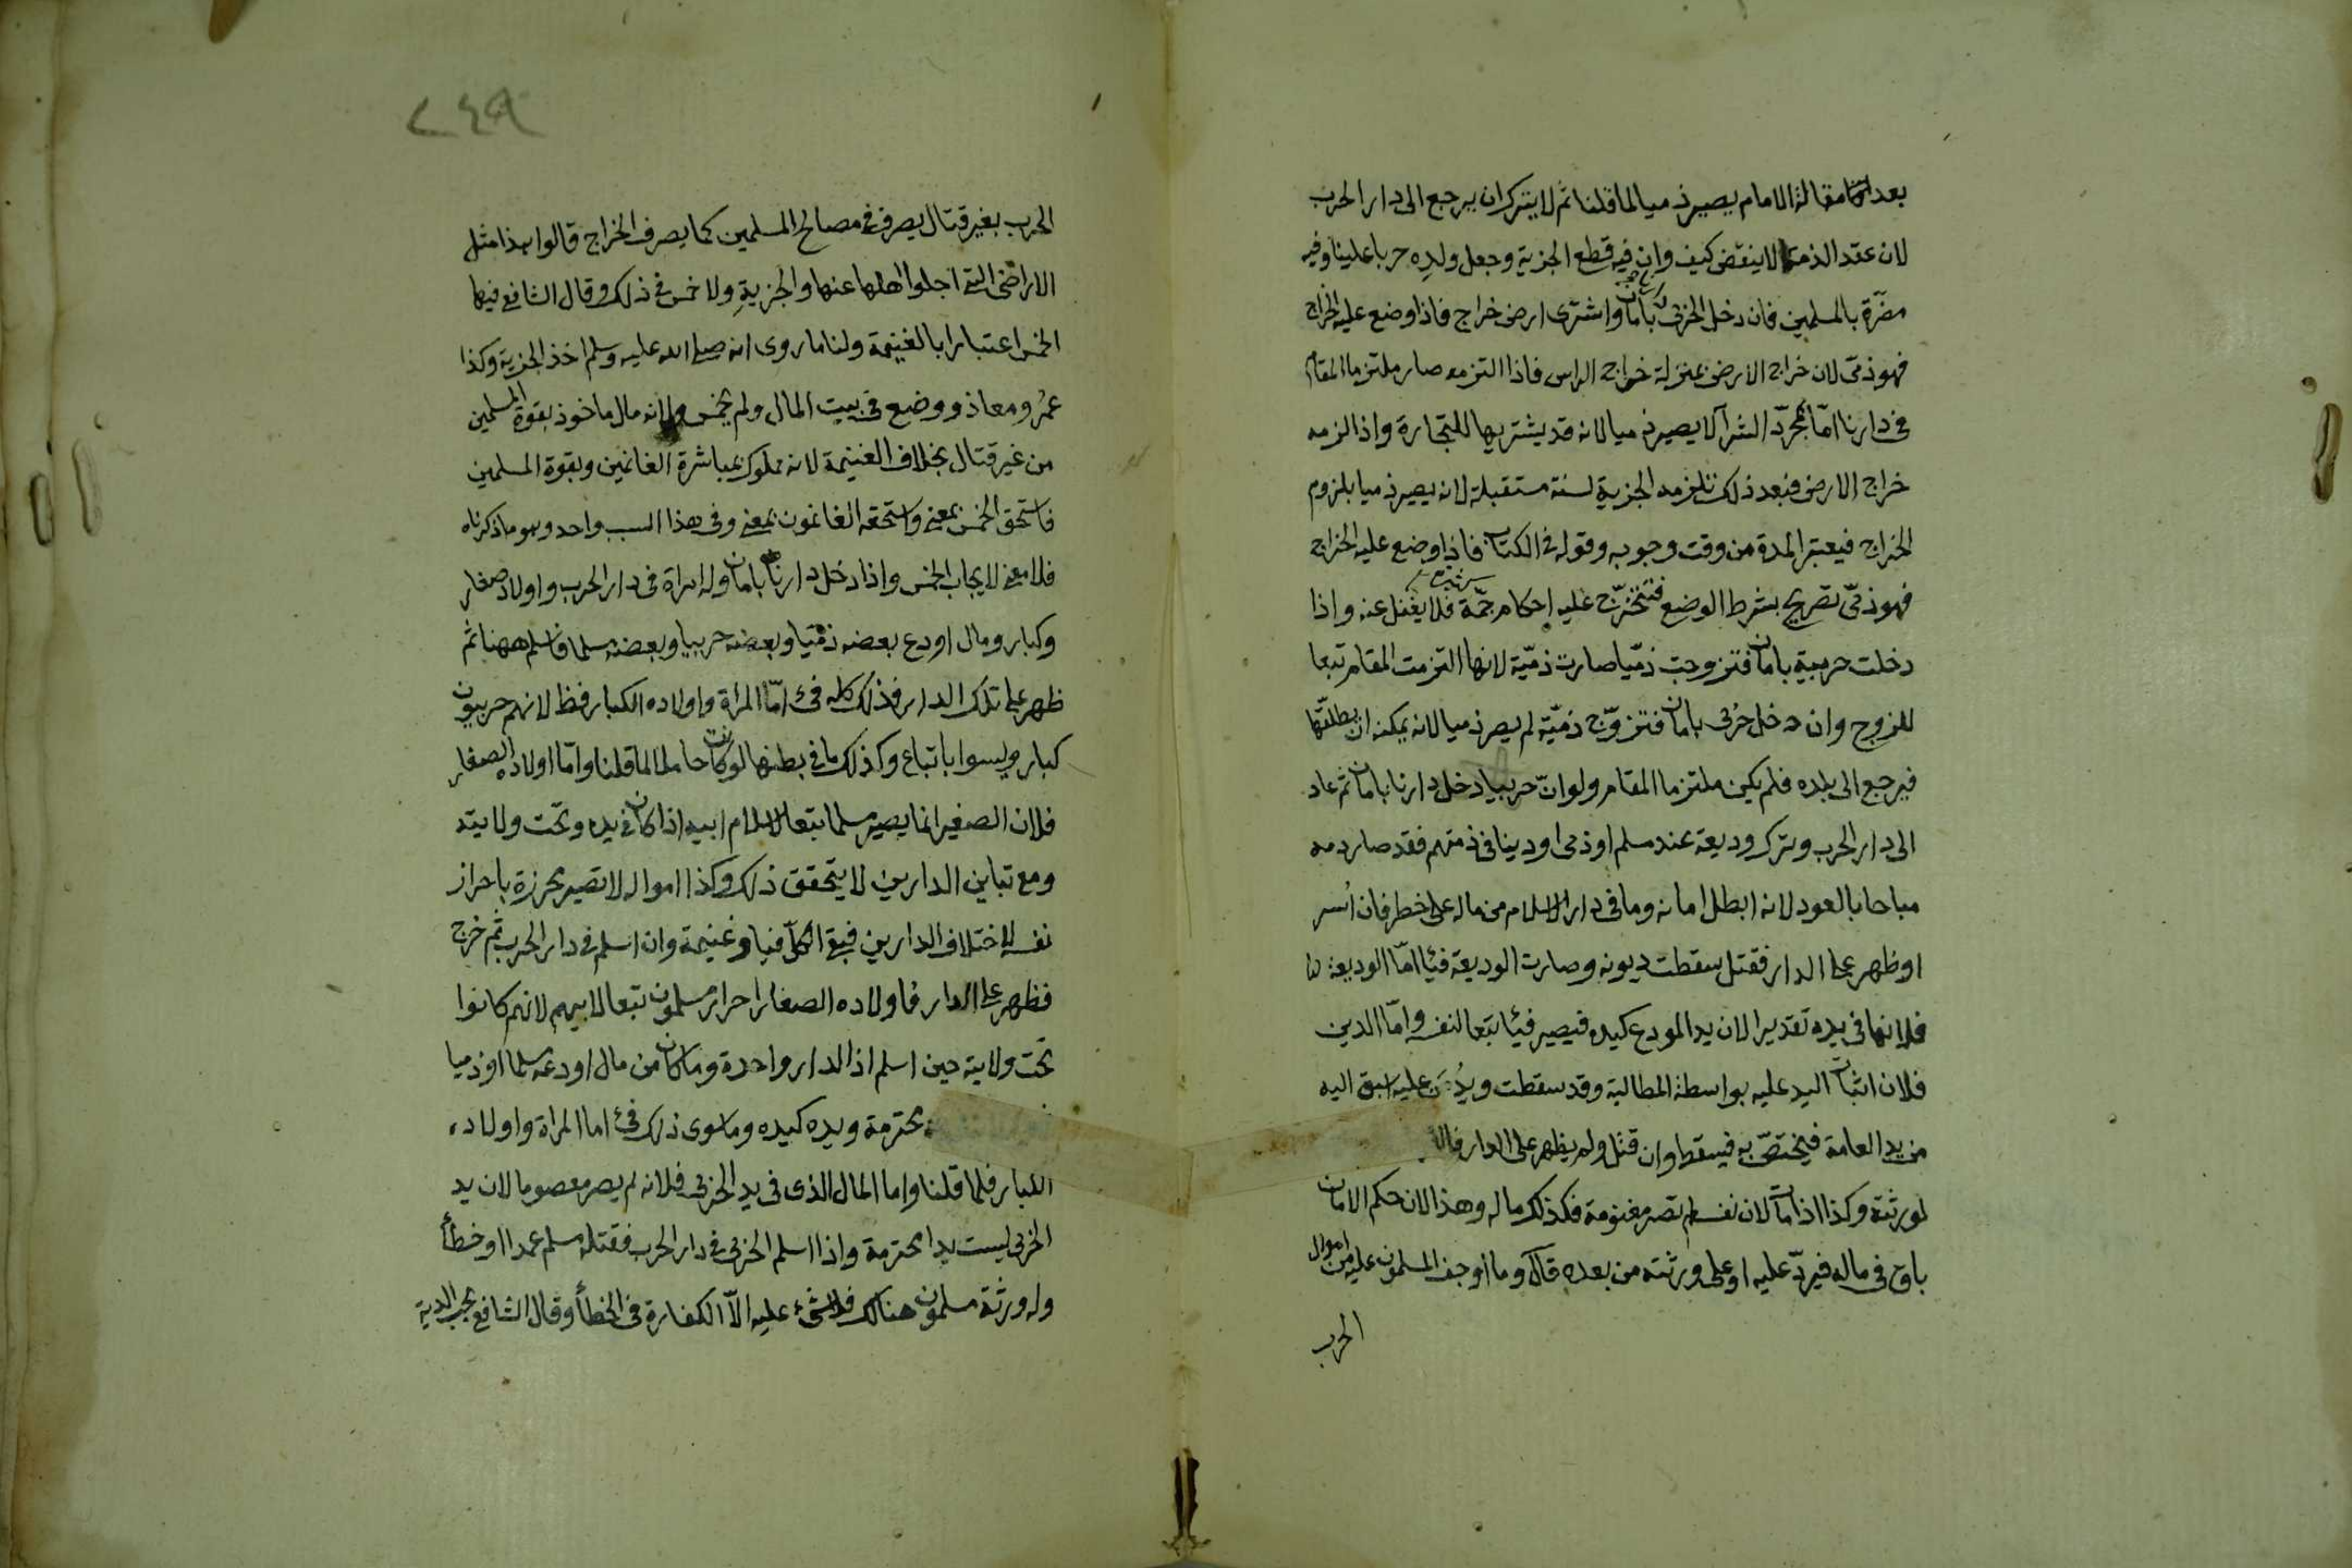 بعد تمام مقالة الامام يصير ذميا لما قلنا ثم لا يترك ان يرجع الى دار الحرب
لان عقد الذمة لا ينقض كيف وان فيه قطع الجزية وجعل ولده حربا علينا وفيه
مضرة بالمسلمين فان دخل الحربى دارنا بامان واشترى ارض خراج فاذا وضع عليه الخراج
فهو ذمى لان خراج الارض بمنزلة خراج الراس فاذا التزمه صار ملتزما المقام
فى دارنا امّا بمجرّد الشرآء لا يصير ذميا لانه قد يشتريها للتجارة واذا لزمه
خراج الارض فبعد ذلك تلزمه الجزية لسنة مستقبلة لانه يصير ذميا بلزوم
الخراج فيعتبر المدة من وقت وجوبه وقوله فى الكتاب فاذا وضع عليه الخراج
فهو ذمّى تصريح بشرط الوضع فتتخرّج عليه احكام جمّة فلا يغفل عنه واذا
دخلت حربية بامان فتزوجت ذمّيا صارت ذمّية لانها التزمت المقام تبعا
للزوج وان دخل حربى بامان فتزوّج ذمّية لم يصر ذميا لانه يمكنه ان يطلّقها
فيرجع الى بلده فلم يكن ملتزما المقام ولو انّ حربيا دخل دارنا بامان ثم عاد
الى دار الحرب وترك وديعة عند مسلم او ذمى او دينا فى ذمتهم فقد صار دمه
مباحا بالعود لانه ابطل امانه وما فى دار الاسلام من ماله على خطر فان اُسر
او ظهر على الدار فقتل سقطت ديونه وصارت الوديعة فيئا امّا الوديعة
فلانها فى يده تقديرا لان يد المودع كيده فيصير فيئا تبعا لنفسه وامّا الدين
فلان اثبات اليد عليه بواسطة المطالبة وقد سقطت ويد من عليه اسبق اليه
من يد العامة فيختصّ به فيسقط وان قتل ولم يظهر على الدار فالا
لورثته وكذا اذا مات لان نفسه لم تصر مغنومة فكذلك ماله وهذا لان حكم الامان
باق فى ماله فيردّ عليه او على ورثته من بعده قال وما اوجف المسلمون عليه من اموال
الحرب
٢٤٩
الحرب بغير قتال يصرف فى مصالح المسلمين كما يصرف الخراج قالوا هذا مثل
الاراضى التى اجلوا اهلها عنها والجزية ولا خمس فى ذلك وقال الشافعى فيها
الخمس اعتبارا بالغنيمة ولنا ما روى انه صلى الله عليه وسلم اخذ الجزية وكذا
عمر ومعاذ ووضع فى بيت المال ولم يخمس ولانه مال ماخوذ بقوة المسلمين
من غير قتال بخلاف الغنيمة لانه مملوك بمباشرة الغانمين وبقوة المسلمين
فاستحق الخمس بمعنى واستحقه الغانمون بمعنى وفى هذا السبب واحد وهو ما ذكرناه
فلا معنى لايجاب الخمس واذا دخل دارنا بامان وله امراة فى دار الحرب واولاد صغار
وكبار ومال اودع بعضه ذمّيا وبعضه حربيا وبعضه مسلما فاسلم ههنا ثم
ظهر على تلك الدار فذلك كله فىء امّا المراة واولاده الكبار فظ لانهم حربيون
كبار وليسوا باتباع وكذلك ما فى بطنها لو كانت حاملا لما قلنا وامّا اولاده الصغار
فلان الصغير انما يصير مسلما تبعا لاسلام ابيه اذا كان فى يده وتحت ولايته
ومع تباين الدارين لا يتحقق ذلك وكذا امواله لا تصير محرزة باحراز
نفسه لاختلاف الدارين فبقى الكلّ فيا وغنيمة وان اسلم فى دار الحرب ثم خرج
فظهر على الدار فاولاده الصغار احرار مسلمون تبعا لابيهم لانهم كانوا
تحت ولايته حين اسلم اذ الدار واحدة وما كان من مال اودعه مسلما او ذميا
محترمة ويده كيده وما سوى ذلك فىء اما المراة واولاده
الكبار فلما قلنا واما المال الذى فى يد الحربى فلانه لم يصر معصوما لان يد
الحربى ليست يدا محترمة واذا اسلم الحربى فى دار الحرب فقتله مسلم عمدا او خطأ
وله ورثة مسلمون هنالك فلا شىء عليه الّا الكفارة فى الخطأ وقال الشافعى يجب الدية